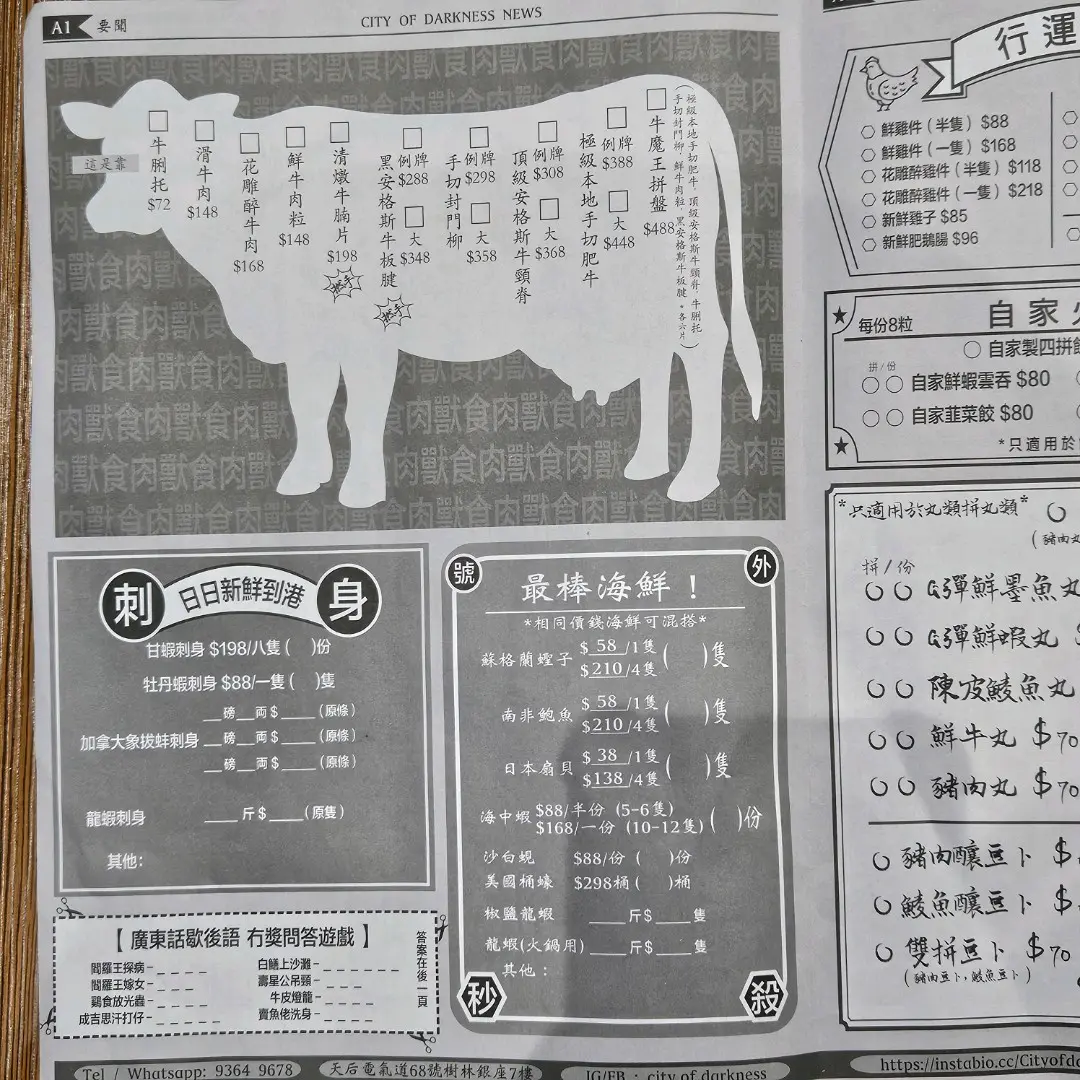 A1 要聞
CITY OF DARKNESS NEWS
食肉獸食肉獸食肉獸食肉獸
這是靠
牛脷托
$72
滑牛肉
$148
花雕醉牛肉
$168
鮮牛肉粒
$148
清燉牛腩片
$198
黑安格斯牛板腱
例牌
$288
大
$348
手切封門柳
例牌
$298
大
$358
頂級安格斯牛頸脊
例牌
$308
大
$368
極級本地手切肥牛
例牌
$388
大
$448
牛魔王拼盤
$488
(極級本地手切肥牛,頂級安格斯牛頸脊,牛脷托
手切封門柳,鮮牛肉粒,黑安格斯牛板腱 *各六片)
刺 日日新鮮到港 身
甘蝦刺身 $198/八隻 ( )份
牡丹蝦刺身 $88/一隻 ( )隻
__磅__両 $____(原條)
加拿大象拔蚌刺身 __磅__両 $____(原條)
__磅__両 $____(原條)
龍蝦刺身 ____斤 $____(原隻)
其他:
號 外
最棒海鮮!
*相同價錢海鮮可混搭*
蘇格蘭蟶子 $ 58 /1隻 ( )隻
$210/4隻
南非鮑魚 $ 58 /1隻 ( )隻
$210/4隻
日本扇貝 $ 38 /1隻 ( )隻
$138/4隻
海中蝦 $88/半份 (5-6隻) ( )份
$168/一份 (10-12隻)
沙白蜆 $88/份 ( )份
美國桶蠔 $298桶 ( )桶
椒鹽龍蝦 ____斤$____隻
龍蝦(火鍋用) ____斤$____隻
其他:
秒 殺
【 廣東話歇後語 冇獎問答遊戲 】
答案在後一頁
閻羅王探病- _ _ _ _
閻羅王嫁女- _ _ _
鷄食放光蟲- _ _ _ _
成吉思汗打仔- _ _ _ _ _
白鱔上沙灘- _ _ _ _ _ _
壽星公吊頸- _ _ _
牛皮燈籠- _ _ _ _
賣魚佬洗身- _ _ _ _
行運
鮮雞件 (半隻) $88
鮮雞件 (一隻) $168
花雕醉雞件 (半隻) $118
花雕醉雞件 (一隻) $218
新鮮雞子 $85
新鮮肥鵝腸 $96
每份8粒
自家
自家製四拼
拼/份
自家鮮蝦雲吞 $80
自家韮菜餃 $80
*只適用於
*只適用於丸類拼丸類*
(豬肉丸
拼/份
彈鮮墨魚丸
彈鮮蝦丸
陳皮鯪魚丸
鮮牛丸 $70
豬肉丸 $70
豬肉釀豆卜 $
鯪魚釀豆卜 $
雙拼豆卜 $70
(豬肉豆卜,鯪魚豆卜)
Tel / Whatsapp: 9364 9678
天后電氣道68號樹林銀座7樓
IG/FB : city of darkness
https://instabio.cc/Cityofd